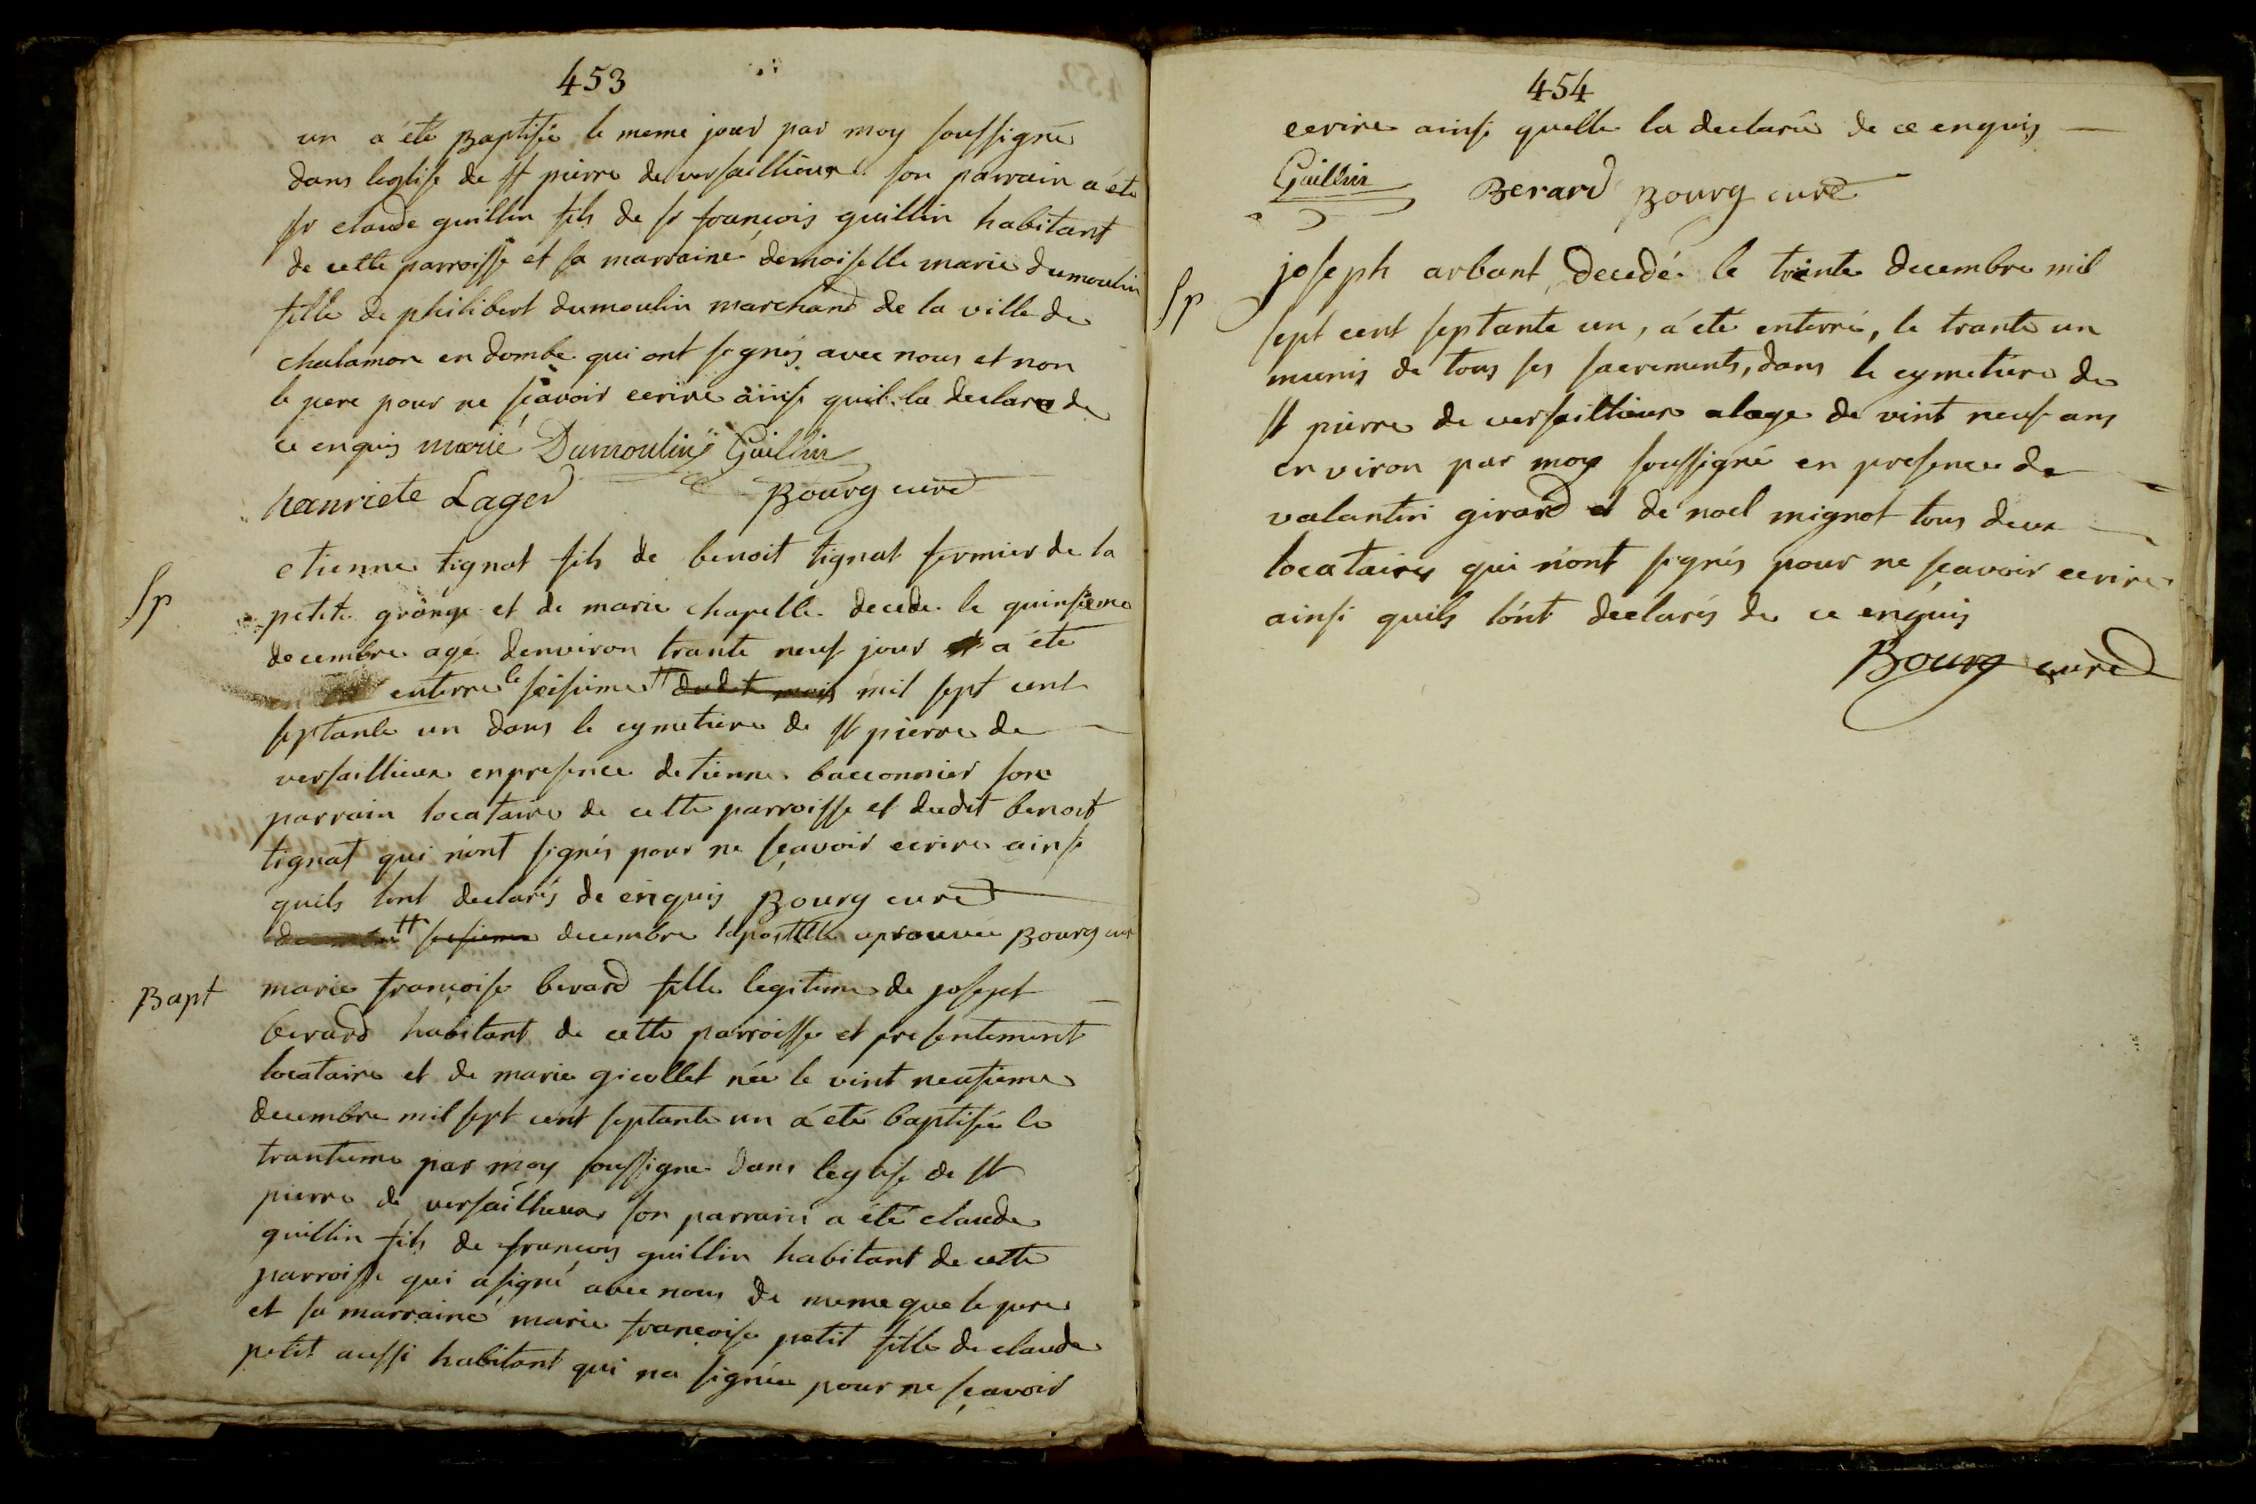 453
un a été Baptisé le meme jour par moy soussigné
dans leglise de st pierre de versaillieux son parrain a été
sr claude guillin fils de sr françois guillin habitant
de cette parroisse et sa marraine demoiselle marie dumoulin
fille de philibert dumoulin marchand de la ville de
chalamon en dombe qui ont signés avec nous et non
le pere pour ne sçavoir ecrire ainsi quil la declare de
ce enquis marie Dumoulin Guillin
hanriete Lager Bourg curé
Sp
etienne tignat fils de benoit tignat fermier de la
petite grange et de marie chapelle decede le quinsieme
decembre agé denviron trante neuf jour a été
enterre le seisieme # dudit mois mil sept cent
septante un dans le cymetiere de st pierre de
versaillieux en presence detienne bacconnier son
parrain locataire de cette parroisse et dudit benoit
tignat qui n'ont signés pour ne sçavoir ecrire ainsi
quils lont declarés de enquis Bourg curé
# decembre lapostille aprouvée Bourg curé
Bapt
marie françoise berard fille legitime de josept
berard habitant de cette parroisse et presentement
locataire et de marie gicollet née le vint neufieme
decembre mil sept cent septante un a été baptisée le
trantieme par moy soussigne dans leglise de st
pierre de versaillieux son parrain a été claude
guillin fils de françois guillin habitant de cette
parroisse qui a signé avec nous de meme que le pere
et sa marraine marie françoise petit fille de claude
petit aussi habitant qui na signée pour ne sçavoir
454
ecrire ainsi quelle la declaré de ce enquis
Guillin Berard Bourg curé
Sp
joseph arbant decedé le trente decembre mil
sept cent septante un, a été enterré, le trante un
munis de tous ses sacrements, dans le cymetiere de
st pierre de versaillieux a lage de vint neuf ans
environ par moy soussigné en presence de
valantin girard et de noel mignot tous deux
locataires qui n'ont signés pour ne sçavoir ecrire
ainsi quils lont declarés de ce enquis
Bourg curé